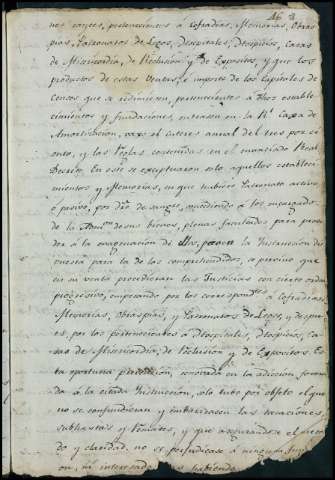 nes raices, pertenecientes à Cofradias, Memorias, Obras
pias, Patronatos de Legos, Hospitales, Hospicios, Casas
de Misericordia, de Reclusion y de Expositos, y que los
productos de estas Ventas, è importe de los Capitales de
Censos que se redimiesen, pertenecientes à dhos estable
cimientos y fundaciones, entrasen en la Rl. Caxa de
Amortizacion, vaxo el interes anual del tres por ci
ento, y las Reglas contenidas en el enunciado Real
Decreto. En este se exceptuaron solo aquellos estableci
mientos y Memorias, en que hubiere Patronato activo
ó pasivo, por dro. de sangre, concediendo à los encargados
de la Admon. de sus bienes, plenas facultades para proce
der à la enagenacion de ellos, y en la Instruccion dis
puesta para la de los comprehendidos, se previno que
en su venta procedieran las Justicias con cierto orden
progresivo, empezando por los correspondtes. à Cofradias,
Memorias, Obraspias, y Patronatos de Legos, y despu
es, por los pertenecientes à Hospitales, Hospicios, Ca
sas de Misericordia, de Reclusion y de Expositos. Es
ta oportuna, renovada en la adiccion, forma
da à la citada Instruccion, solo tubo por objeto el que
no se confundieran y embarazasen las tasaciones
subhastas y Remates, y que asegurandose el
do y claridad, no se perjudicase à ninguna
on, ni interesado